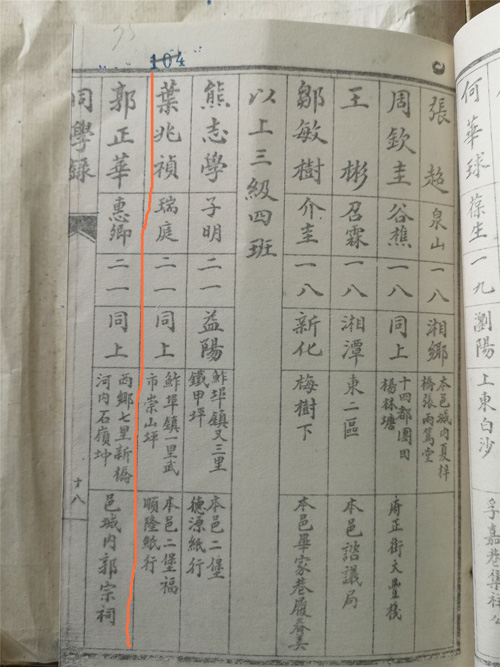 104
何華球 葆生 一九 瀏陽 上東白沙
張超 泉山 一八 湘鄉 本邑城內夏梓橋張雨篤堂
周欽圭 谷樵 一八 同上 十四都團田楊林塘 府正街大豐棧
王彬 召霖 一八 湘潭 東二區 本邑諮議局
鄒敏樹 介圭 一八 新化 梅樹下 本邑畢家巷履春美
以上三級四班
熊志學 子明 二一 益陽 鮓埠鎮又三里鐵甲坪 本邑二堡德源紙行
葉兆禎 瑞庭 二一 同上 鮓埠鎮一里武市崇山坪 本邑二堡福順隆紙行
郭正華 惠卿 二一 同上 西鄉七里新橋河內石嶺坤 邑城內郭宗祠
同學錄 十八